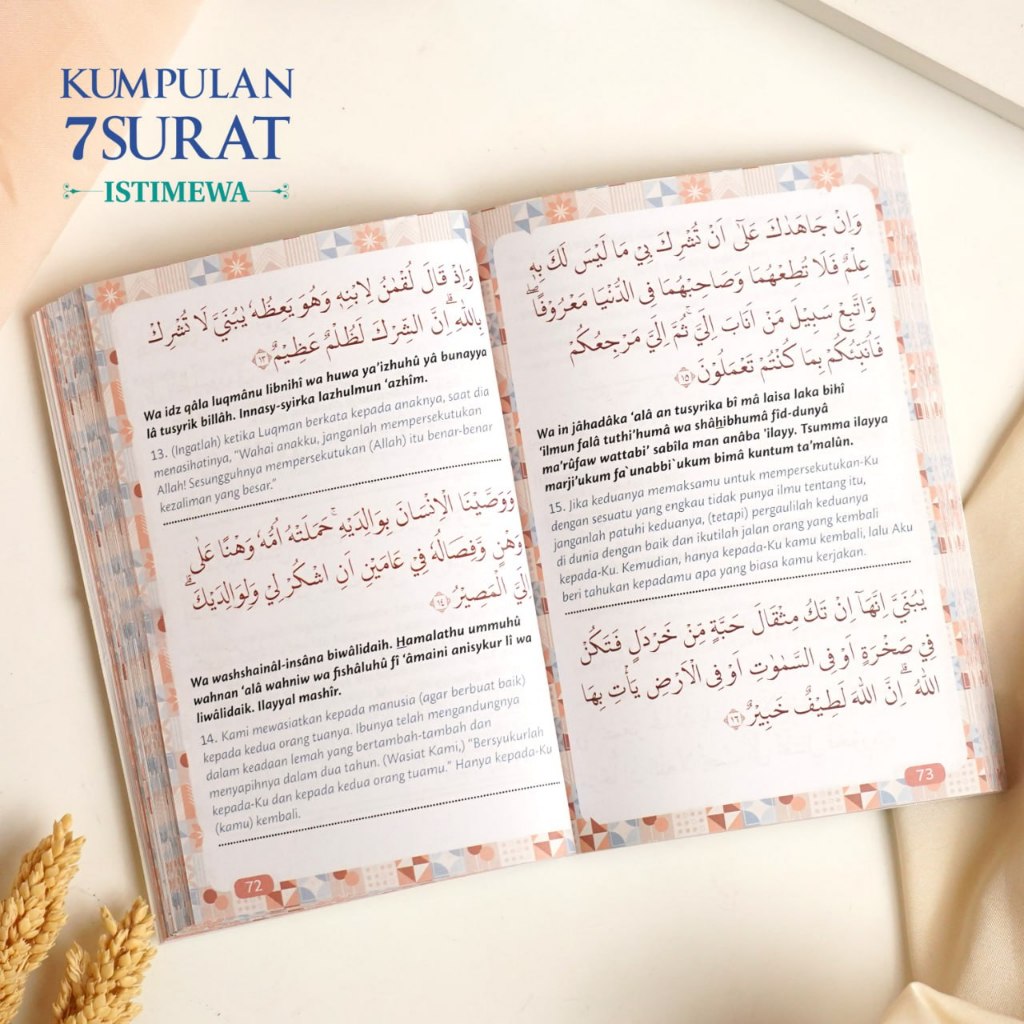 KUMPULAN
7SURAT
ISTIMEWA
وَاِذْ قَالَ لُقْمٰنُ لِابْنِهٖ وَهُوَ يَعِظُهٗ يٰبُنَيَّ لَا تُشْرِكْ
بِاللّٰهِ ۗاِنَّ الشِّرْكَ لَظُلْمٌ عَظِيْمٌ ١٣
Wa idz qâla luqmânu libnihî wa huwa ya'izhuhû yâ bunayya
lâ tusyrik billâh. Innasy-syirka lazhulmun 'azhîm.
13. (Ingatlah) ketika Luqman berkata kepada anaknya, saat dia
menasihatinya, "Wahai anakku, janganlah mempersekutukan
Allah! Sesungguhnya mempersekutukan (Allah) itu benar-benar
kezaliman yang besar."
وَوَصَّيْنَا الْاِنْسَانَ بِوَالِدَيْهِۚ حَمَلَتْهُ اُمُّهٗ وَهْنًا عَلٰى
وَهْنٍ وَّفِصَالُهٗ فِيْ عَامَيْنِ اَنِ اشْكُرْ لِيْ وَلِوَالِدَيْكَۗ
اِلَيَّ الْمَصِيْرُ ١٤
Wa washshainâl-insâna biwâlidaih. Hamalathu ummuhû
wahnan 'alâ wahniw wa fishâluhû fî 'âmaini anisykur lî wa
liwâlidaik. Ilayyal mashîr.
14. Kami mewasiatkan kepada manusia (agar berbuat baik)
kepada kedua orang tuanya. Ibunya telah mengandungnya
dalam keadaan lemah yang bertambah-tambah dan
menyapihnya dalam dua tahun. (Wasiat Kami,) "Bersyukurlah
kepada-Ku dan kepada kedua orang tuamu." Hanya kepada-Ku
(kamu) kembali.
72
وَاِنْ جَاهَدٰكَ عَلٰٓى اَنْ تُشْرِكَ بِيْ مَا لَيْسَ لَكَ بِهٖ
عِلْمٌ فَلَا تُطِعْهُمَا وَصَاحِبْهُمَا فِى الدُّنْيَا مَعْرُوْفًاۖ
وَّاتَّبِعْ سَبِيْلَ مَنْ اَنَابَ اِلَيَّۚ ثُمَّ اِلَيَّ مَرْجِعُكُمْ
فَاُنَبِّئُكُمْ بِمَا كُنْتُمْ تَعْمَلُوْنَ ١٥
Wa in jâhadâka 'alâ an tusyrika bî mâ laisa laka bihî
'ilmun falâ tuthi'humâ wa shâhibhumâ fîd-dunyâ
ma'rûfaw wattabi' sabîla man anâba 'ilayy. Tsumma ilayya
marji'ukum fa`unabbi`ukum bimâ kuntum ta'malûn.
15. Jika keduanya memaksamu untuk mempersekutukan-Ku
dengan sesuatu yang engkau tidak punya ilmu tentang itu,
janganlah patuhi keduanya, (tetapi) pergaulilah keduanya
di dunia dengan baik dan ikutilah jalan orang yang kembali
kepada-Ku. Kemudian, hanya kepada-Ku kamu kembali, lalu Aku
beri tahukan kepadamu apa yang biasa kamu kerjakan.
يٰبُنَيَّ اِنَّهَآ اِنْ تَكُ مِثْقَالَ حَبَّةٍ مِّنْ خَرْدَلٍ فَتَكُنْ
فِيْ صَخْرَةٍ اَوْ فِى السَّمٰوٰتِ اَوْ فِى الْاَرْضِ يَأْتِ بِهَا
اللّٰهُ ۗاِنَّ اللّٰهَ لَطِيْفٌ خَبِيْرٌ ١٦
73